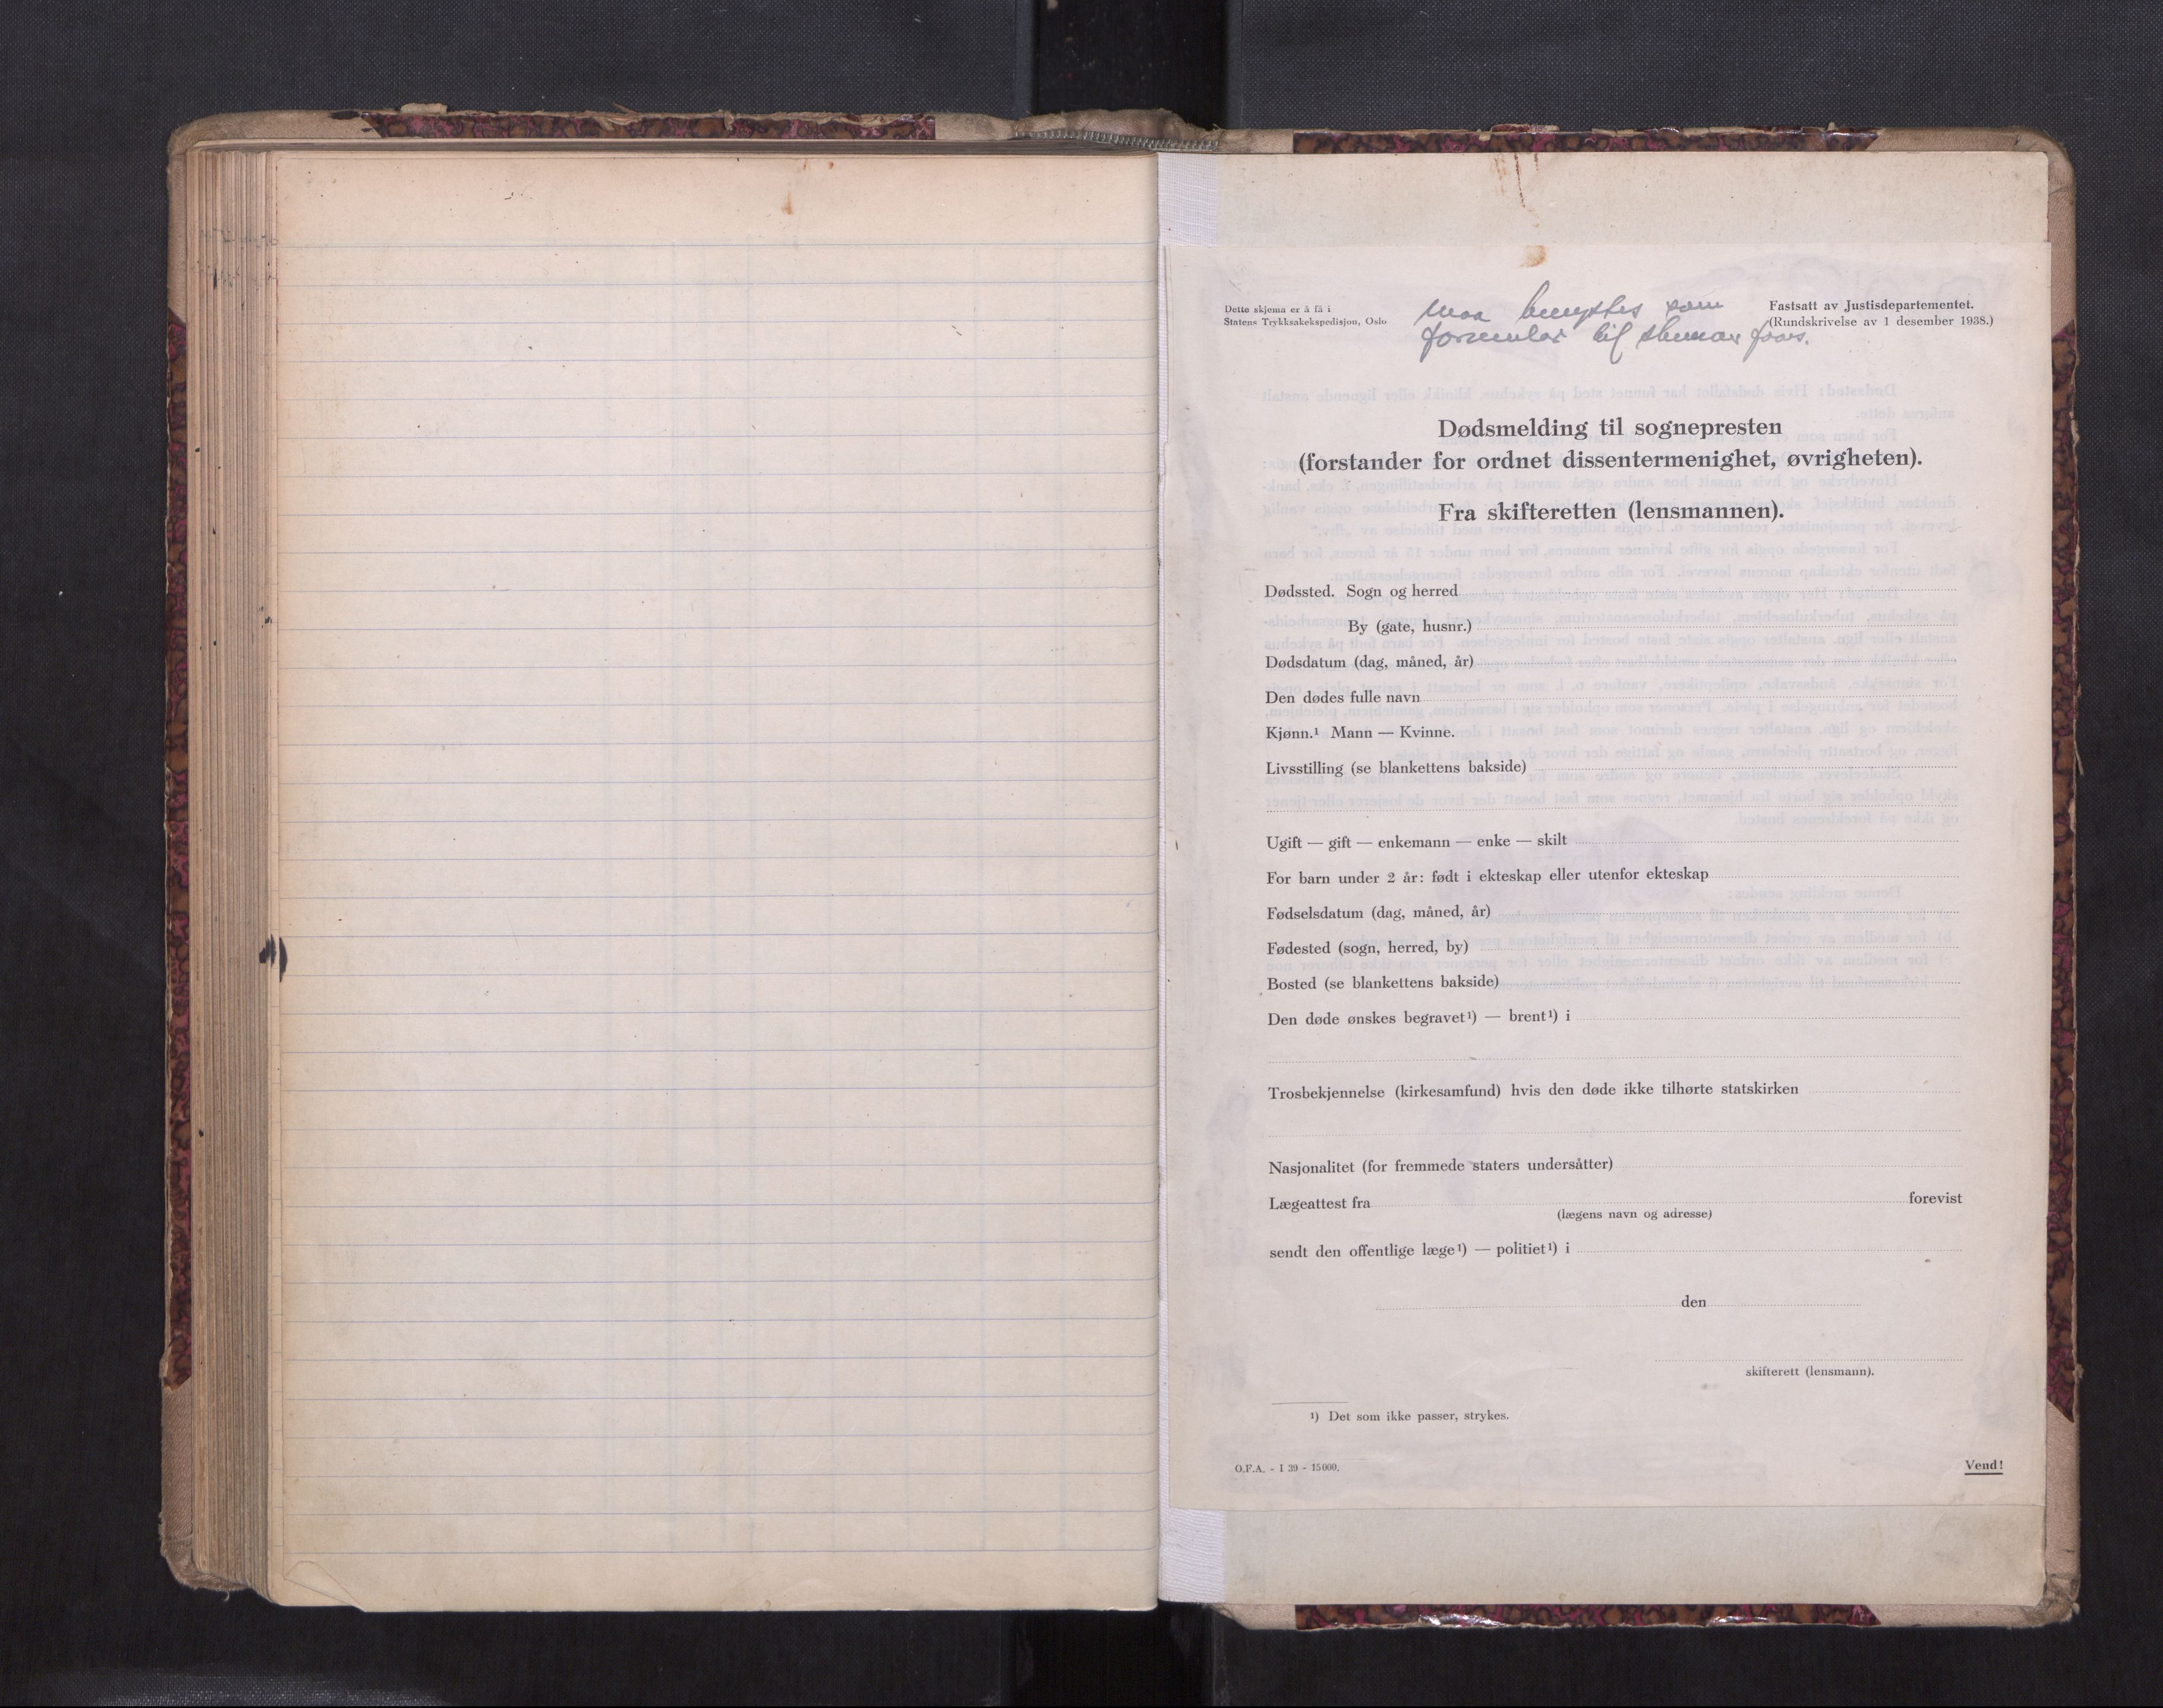 Dette skjema er å få i
Statens Trykksakekspedisjon, Oslo
Maa benyttes som
formular til
Fastsatt av Justisdepartementet.
(Rundskrivelse av 1 desember 1938.)
Dødsmelding til sognepresten
(forstander for ordnet dissentermenighet, øvrigheten).
Fra skifteretten (lensmannen).
Dødssted. Sogn og herred
By (gate, husnr.)
Dødsdatum (dag, måned, år)
Den dødes fulle navn
Kjønn.¹ Mann — Kvinne.
Livsstilling (se blankettens bakside)
Ugift — gift — enkemann — enke — skilt
For barn under 2 år: født i ekteskap eller utenfor ekteskap
Fødselsdatum (dag, måned, år)
Fødested (sogn, herred, by)
Bosted (se blankettens bakside)
Den døde ønskes begravet¹) — brent¹) i
Trosbekjennelse (kirkesamfund) hvis den døde ikke tilhørte statskirken
Nasjonalitet (for fremmede staters undersåtter)
Lægeattest fra forevist
(lægens navn og adresse)
sendt den offentlige læge¹) — politiet¹) i
den
skifterett (lensmann).
¹) Det som ikke passer, strykes.
O.F.A. - I 39 - 15000.
Vend!